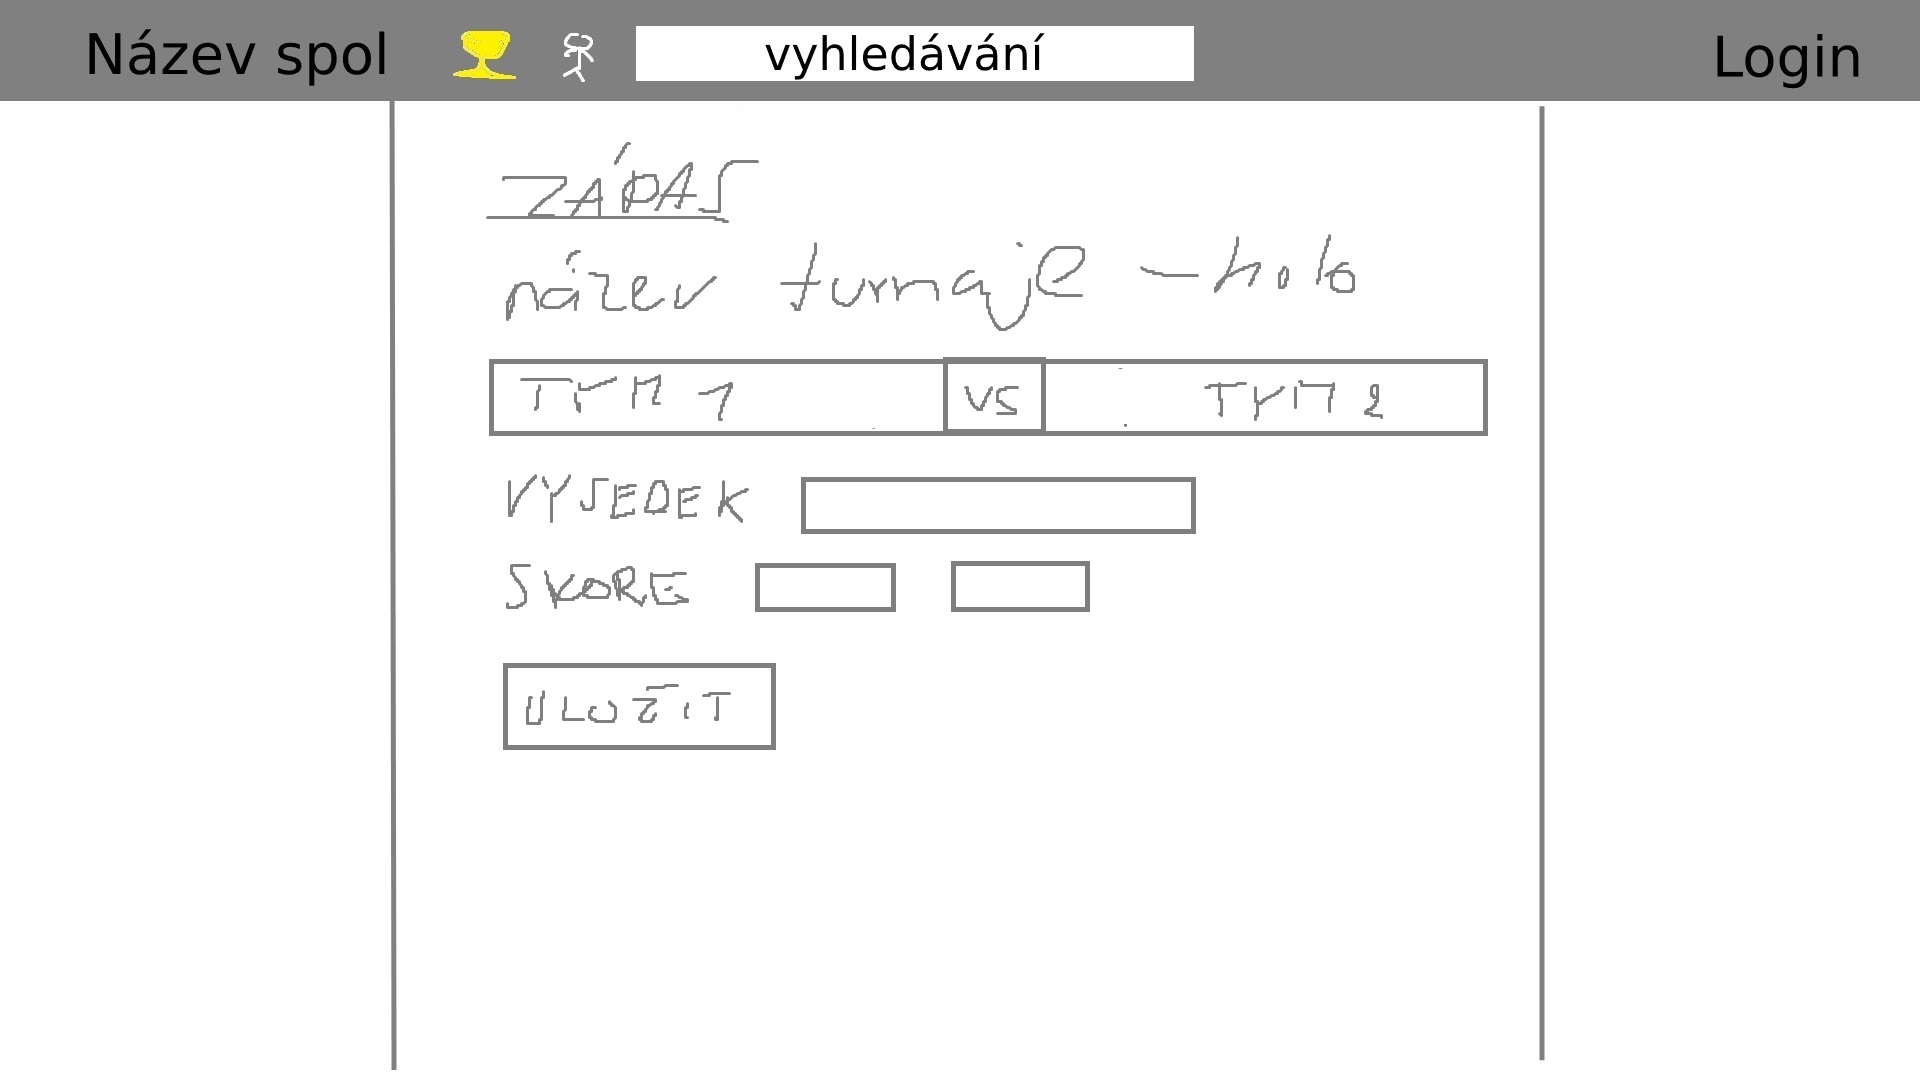 Název spol vyhledávání Login
ZÁPAS
název turnaje - kolo
TYM 1 VS TYM 2
VYSEDEK
SKORE
ULOŽIT